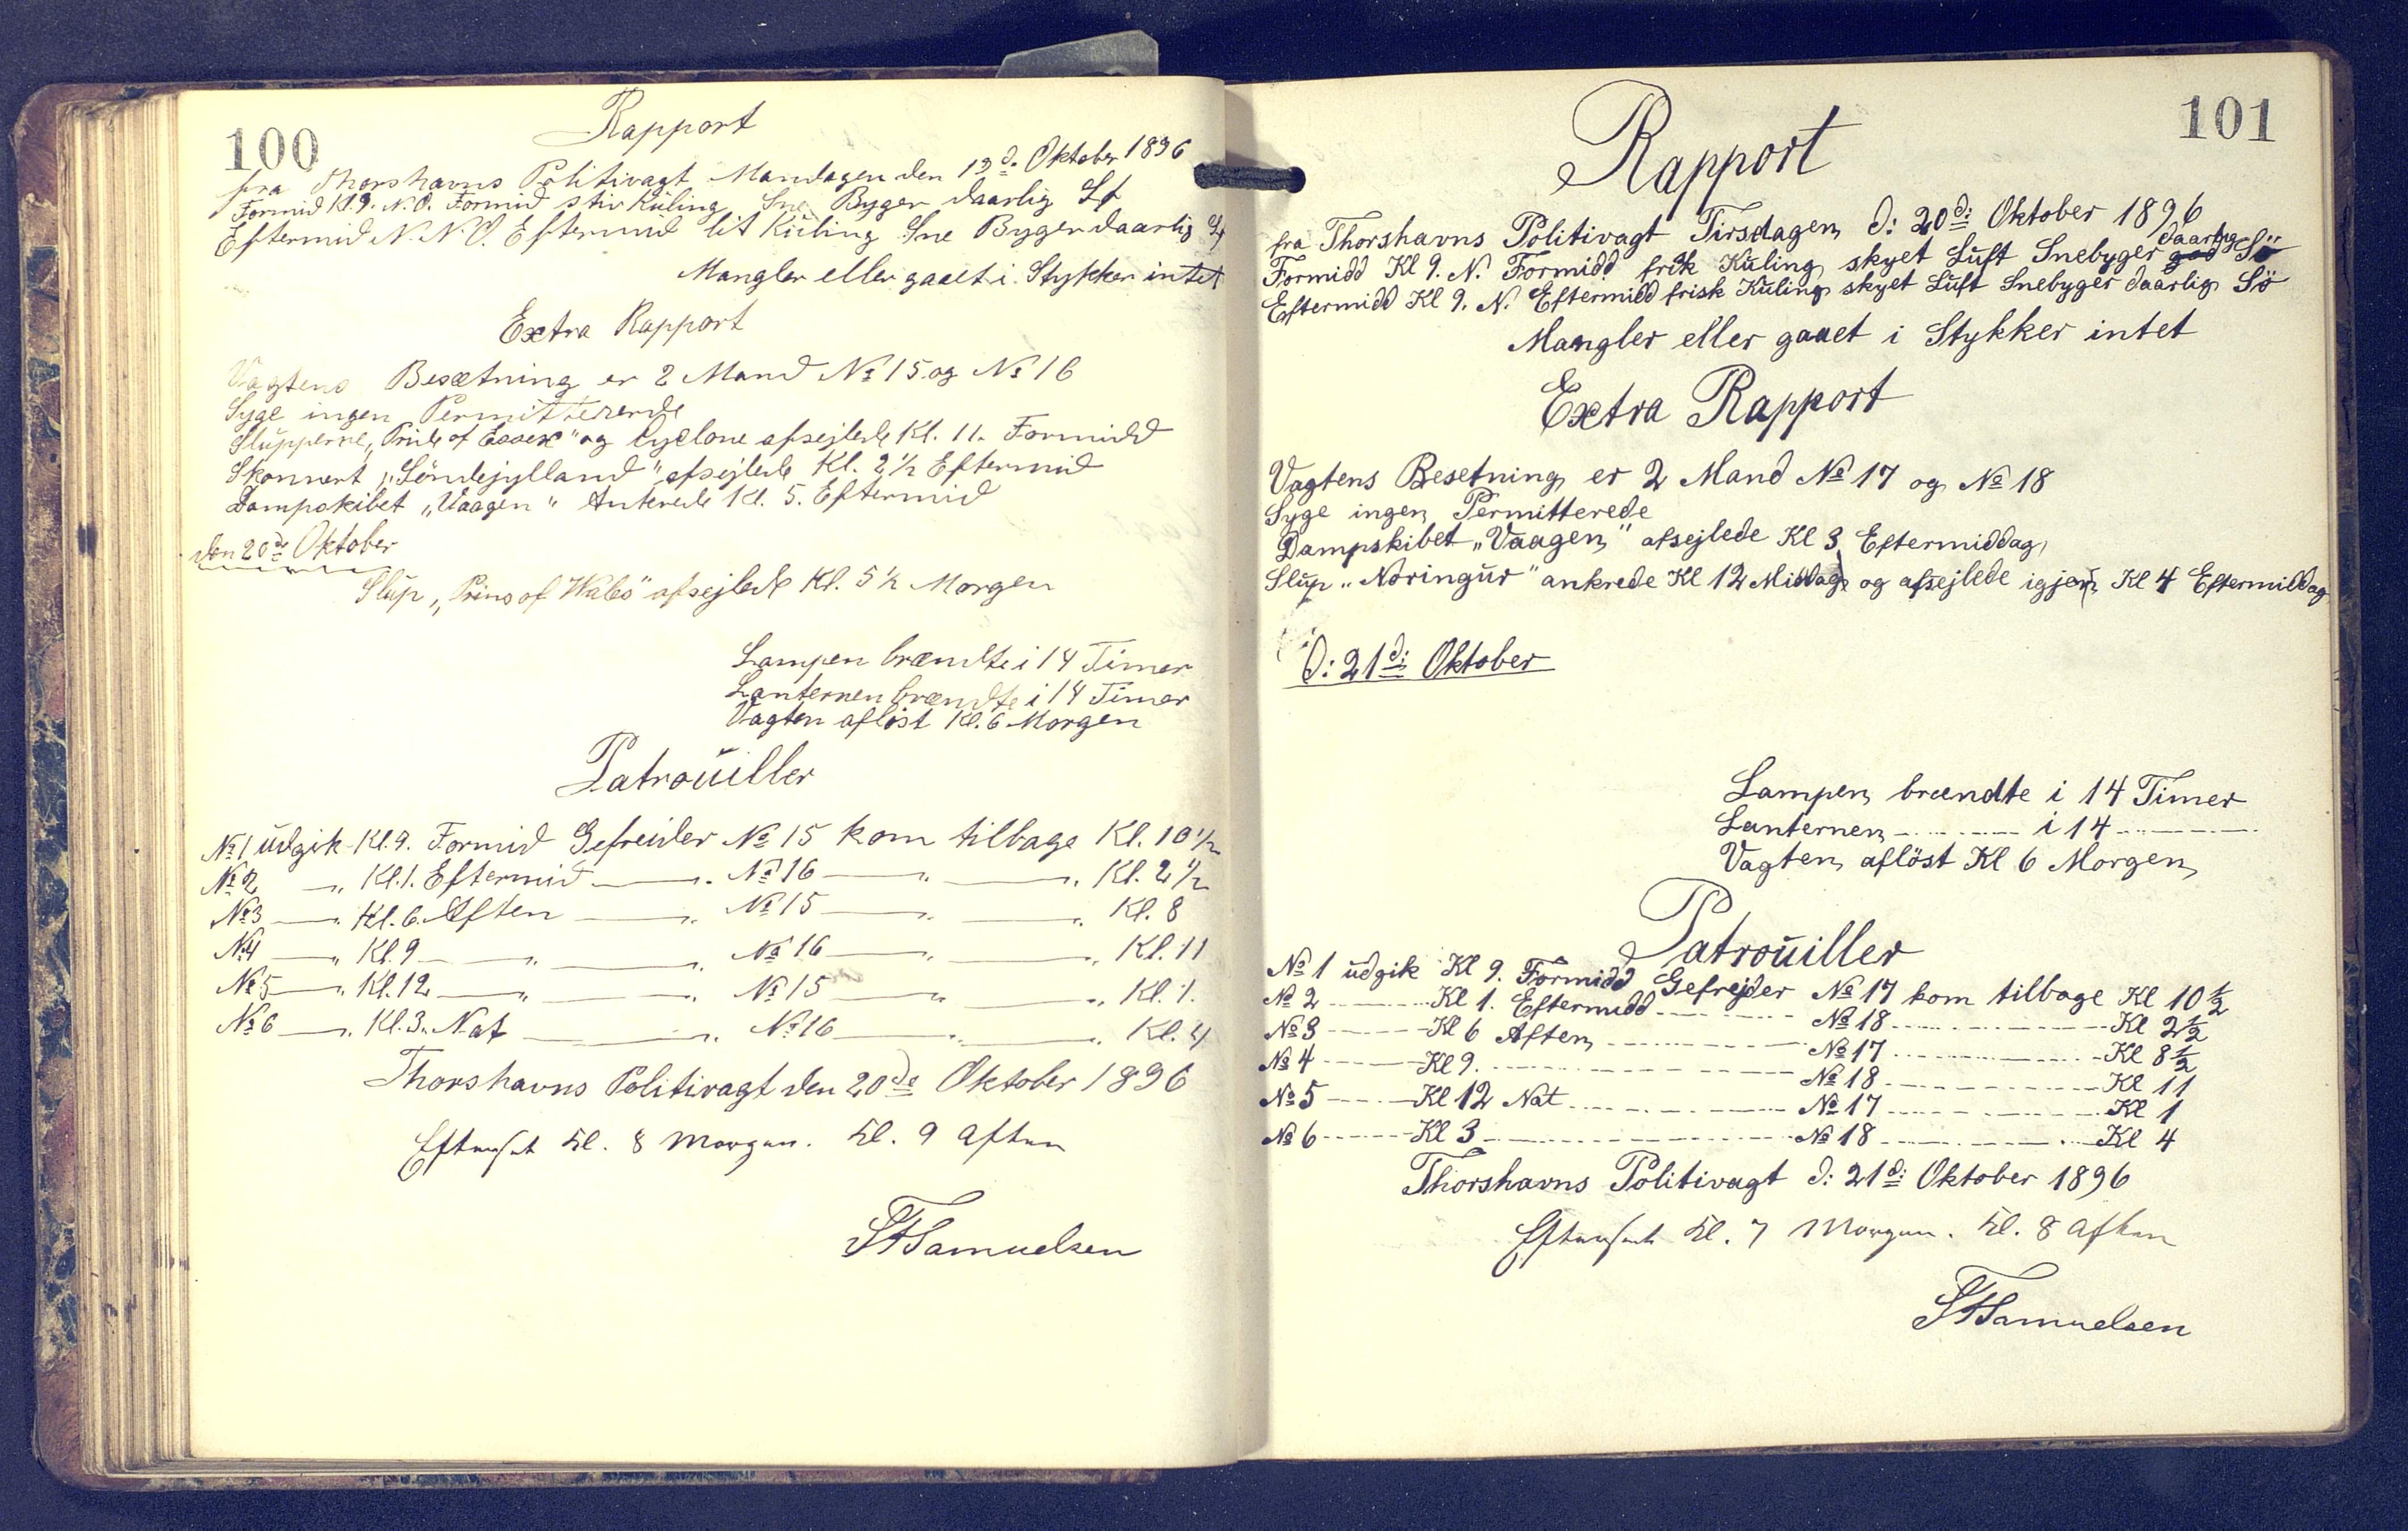 100
Rapport
fra Thorshavns Politivagt Mandagen den 19d. Oktober 1896
Formid Kl. 9. N.O. Formid stiv Kúling Sne Byger daarlig
Eftermid N.N.O. Eftermid lit Kúling Sne Byger daarlig
Mangler eller gaaet i Stykker intet
Extra Rapport
Vagtens Besætning er 2 Mand № 15 og № 16
Syge ingen Permitterende
Slúpperne „Pride of Essex" og Cyclone afsejlede Kl. 11. Formidd
Skonnert „Söndejylland" afsejlede Kl. 2 1/2 Eftermid
Dampskibet „Vaagen" Ankrede Kl. 5. Eftermid
den 20de Oktober
Slúp „Prins of Wales" afsejlede Kl. 5 1/2 Morgen
Lampen brændte i 14 Timer
Lanternen brændte i 14 Timer
Vagten aflöst Kl. 6 Morgen
Patroúiller
№ 1 údgik Kl. 9. Formid Gefreider № 15 kom tilbage Kl. 10 1/2
№ 2 — „ Kl. 1. Eftermid — „ № 16 — „ — „ Kl. 2 1/2
№ 3 — „ Kl. 6. Aften — „ № 15 — „ — „ Kl. 8
№ 4 — „ Kl. 9 — „ — „ № 16 — „ — „ Kl. 11
№ 5 — „ Kl. 12 — „ — „ № 15 — „ — „ Kl. 1.
№ 6 — „ Kl. 3. Nat — „ № 16 — „ — „ Kl. 4
Thorshavns Politivagt den 20de Oktober 1896
Efterset Kl. 8 Morgen. Kl. 9 Aften
Samuelsen
101
Rapport
fra Thorshavns Politivagt Tirsdagen d: 20d: Oktober 1896
Formidd Kl 9. N. Formidd frisk Kúling skyet Lúft Snebyger god daarlig Sö
Eftermidd Kl 9. N. Eftermidd frisk Kúling skyet Lúft Snebyger daarlig Sö
Mangler eller gaaet i Stykker intet
Extra Rapport
Vagtens Besetning er 2 Mand № 17 og № 18
Syge ingen Permitterede
Dampskibet „Vaagen" afsejlede Kl 3 Eftermiddag
Slúp „Noringúr" ankrede Kl 12 Middag og afsejlede igjen Kl 4 Eftermiddag
d: 21d: Oktober
Lampen brændte i 14 Timer
Lanternen — i 14 —
Vagten aflöst Kl 6 Morgen
Patroúiller
№ 1 údgik Kl 9. Formidd Gefrejder № 17 kom tilbage Kl 10 1/2
№ 2 — Kl 1. Eftermidd — № 18 — Kl 2 1/2
№ 3 — Kl 6 Aften — № 17 — Kl 8 1/2
№ 4 — Kl 9. — № 18 — Kl 11
№ 5 — Kl 12 Nat — № 17 — Kl 1
№ 6 — Kl 3 — № 18 — Kl 4
Thorshavns Politivagt d: 21d: Oktober 1896
Efterset Kl. 7 Morgen. Kl. 8 Aften
Samuelsen